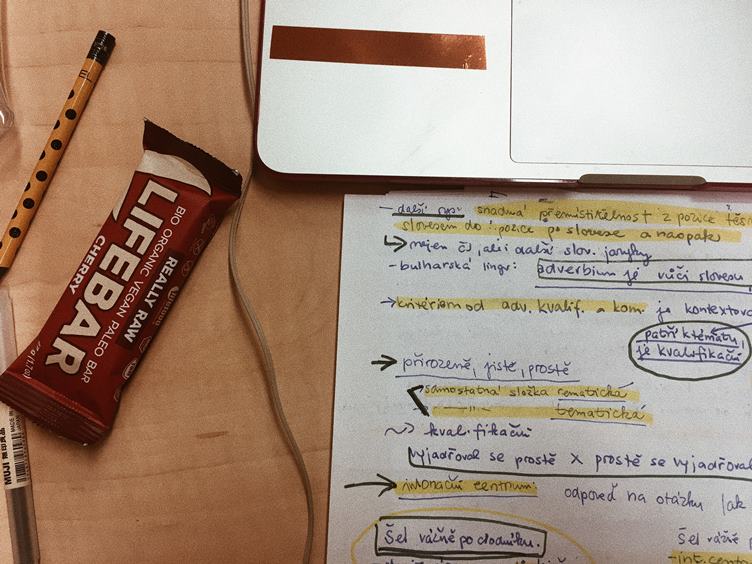 LIFEBAR
BIO ORGANIC VEGAN PALEO BAR
CHERRY
REALLY RAW
MUJI 無印良品
- další rys: snadná přemístitelnost z pozice těs
slovesem do pozice po slovese a naopak
nejen čj, ale i další slov. jazyky
- bulharská lingv: adverbium je vůči slovesu
→ kritériem od adv. kvalif. a kom. je kontextová
patří k tématu,
je kvalifikační
→ přirozeně, jistě, prostě
samostatná složka rematická
-"- tematická
kvalifikační
vyjadřoval se prostě X prostě se vyjadřoval
→ intonační centrum: odpověď na otázku jak
Šel vážně po chodníku.
Šel vážně p
- int. cent